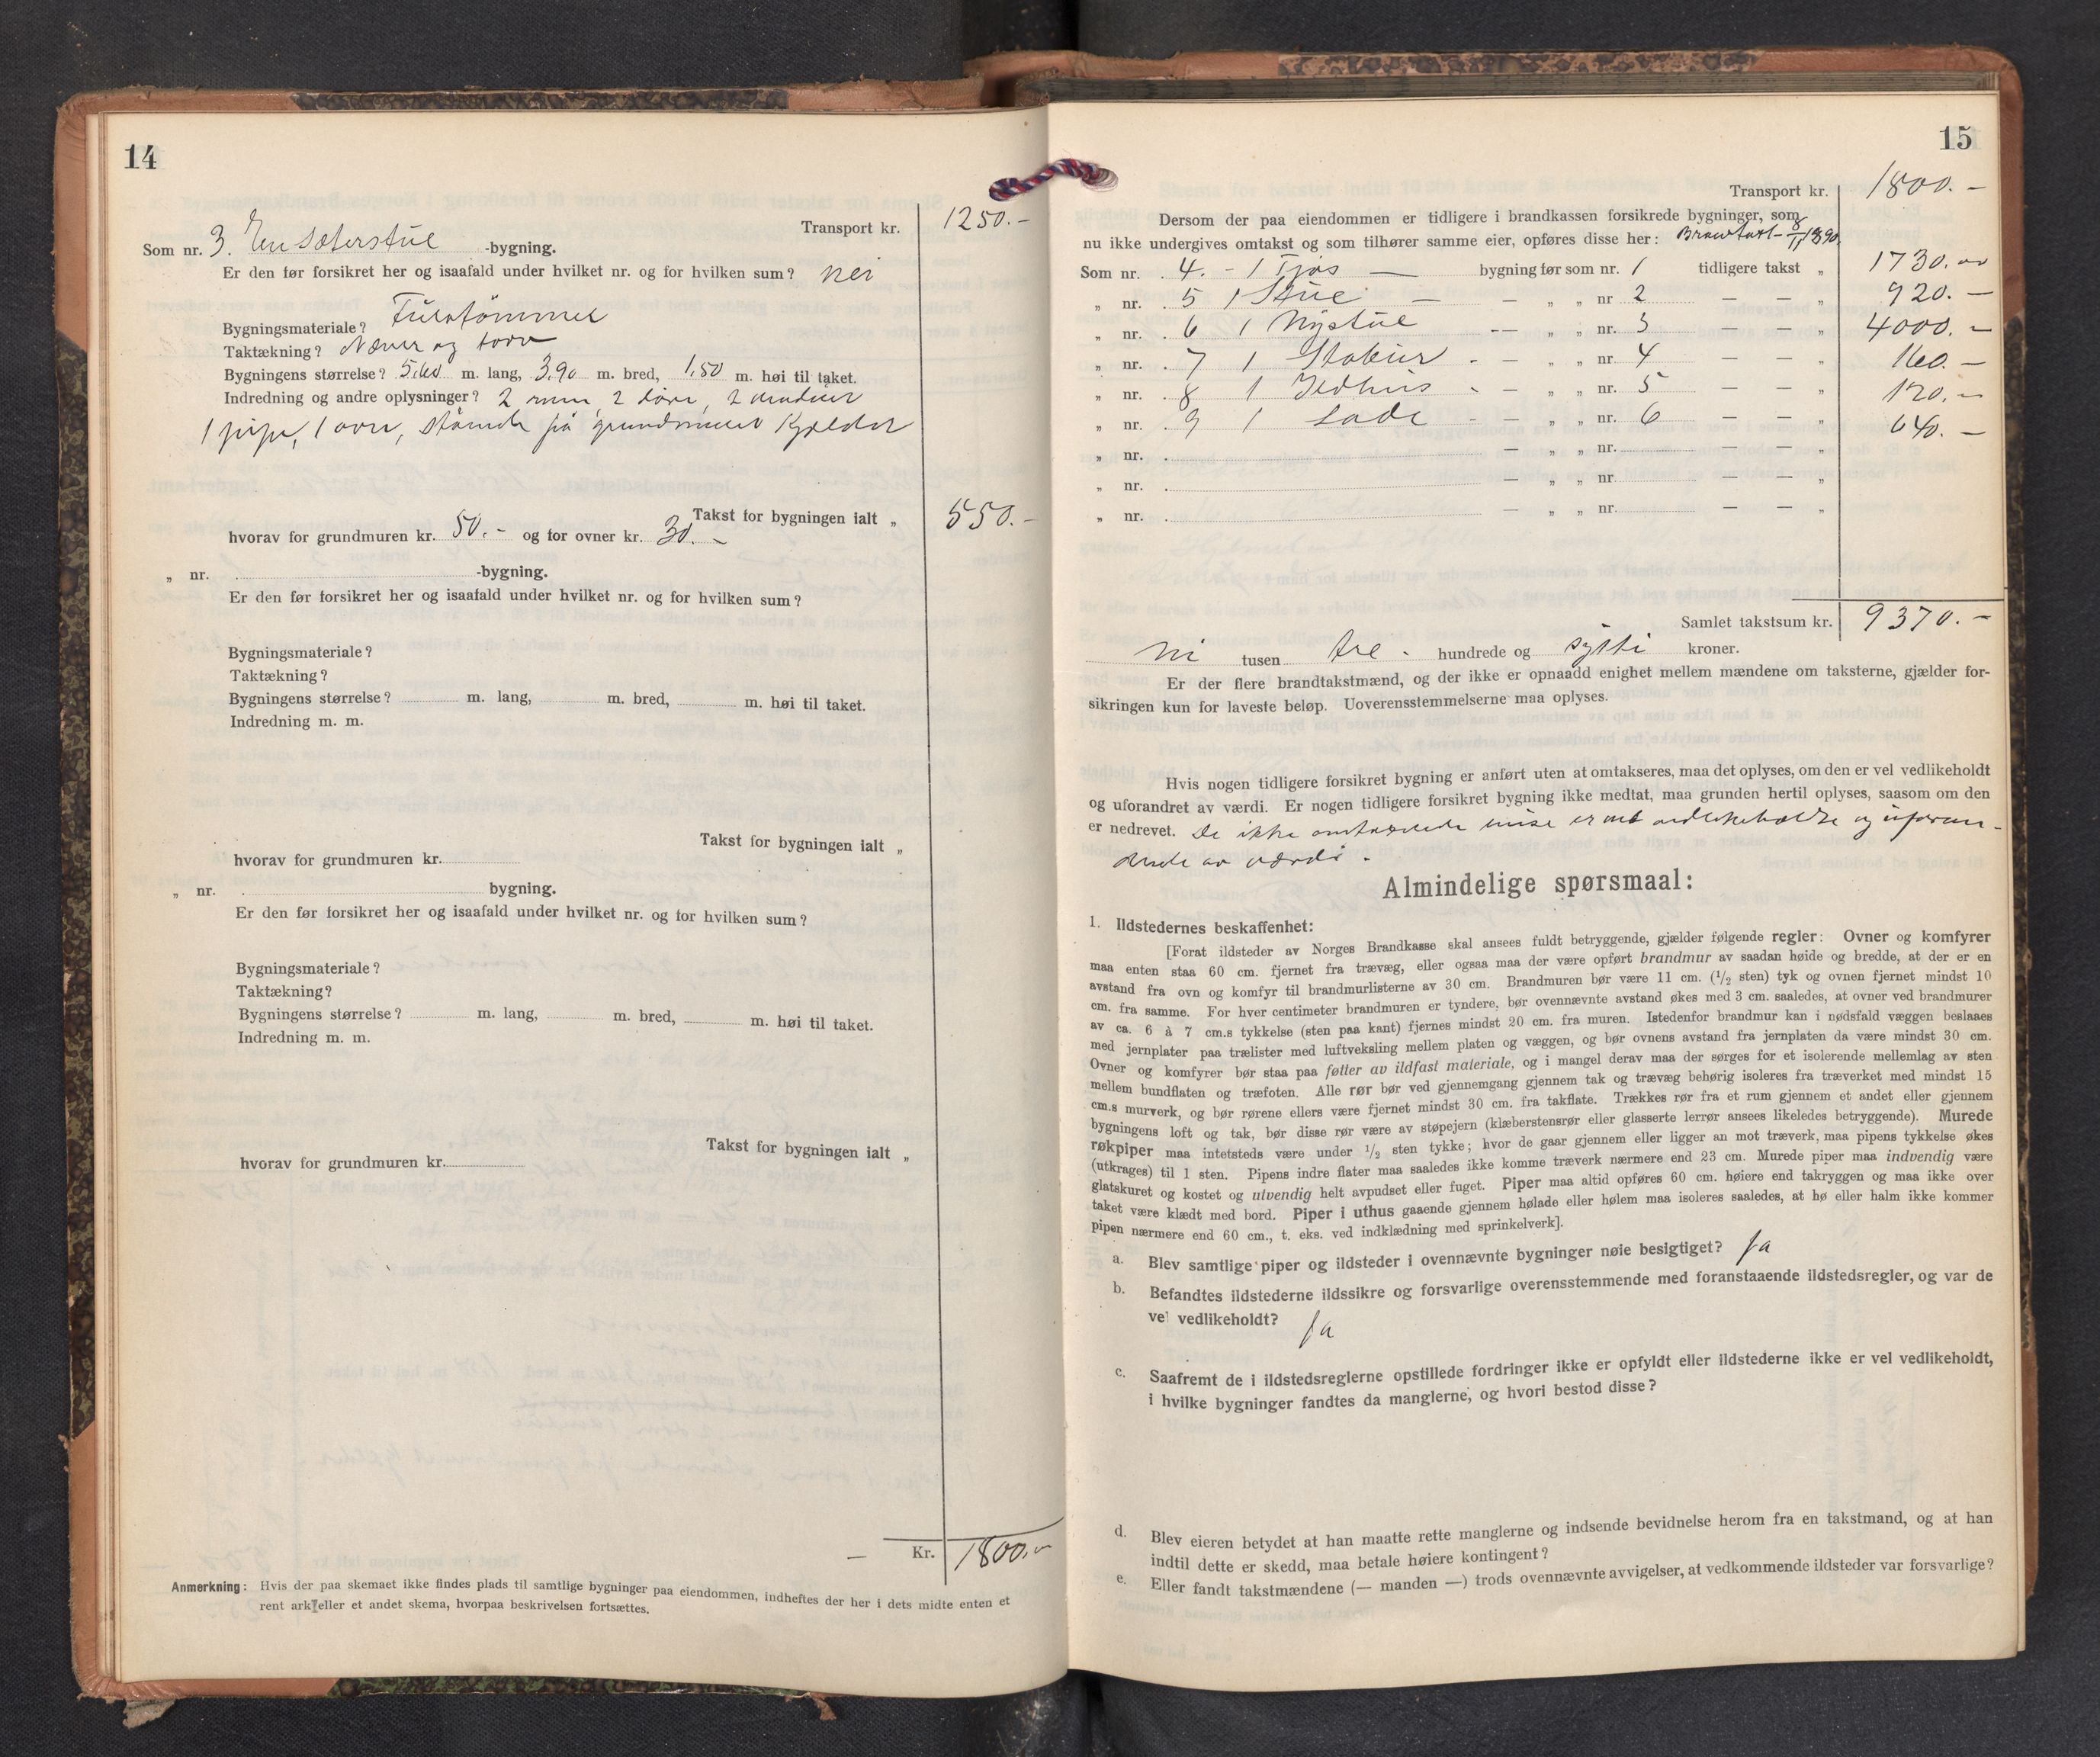 14
Transport kr. 1250.-
Som nr. 3. En Sæterstue -bygning.
Er den før forsikret her og isaafald under hvilket nr. og for hvilken sum? nei
Bygningsmateriale? Furutømmer
Taktækning? Næver og torv
Bygningens størrelse? 5,60 m. lang, 3,90 m. bred, 1,50 m. høi til taket.
Indredning og andre oplysninger? 2 rum, 2 døre, 2 vinduer
1 pipe, 1 ovn, stående på grundmuret Kjelder
Takst for bygningen ialt „ 550.-
hvorav for grundmuren kr. 50.- og for ovner kr. 30.-
„ nr. -bygning.
Er den før forsikret her og isaafald under hvilket nr. og for hvilken sum?
Bygningsmateriale?
Taktækning?
Bygningens størrelse? m. lang, m. bred, m. høi til taket.
Indredning m. m.
Takst for bygningen ialt „
hvorav for grundmuren kr.
„ nr. bygning.
Er den før forsikret her og isaafald under hvilket nr. og for hvilken sum?
Bygningsmateriale?
Taktækning?
Bygningens størrelse? m. lang, m. bred, m. høi til taket.
Indredning m. m.
Takst for bygningen ialt „
hvorav for grundmuren kr.
— Kr. 1800.-
Anmerkning: Hvis der paa skemaet ikke findes plads til samtlige bygninger paa eiendommen, indheftes der her i dets midte enten et
rent ark eller et andet skema, hvorpaa beskrivelsen fortsættes.
15
Transport kr. 1800.-
Dersom der paa eiendommen er tidligere i brandkassen forsikrede bygninger, som
nu ikke undergives omtakst og som tilhører samme eier, opføres disse her: 1890.
Som nr. 4. - 1 Fjøs — bygning før som nr. 1 tidligere takst „ 1730.-
„ nr. 5 1 Stue — — „ „ nr 2 — — „ 920.-
„ nr. 6 1 Nystue -- „ „ nr. 3 — — „ 4000.-
„ nr. 7 1 Stabur - — „ „ nr. 4 — — „ 160.-
„ nr. 8 1 Ildhus - — „ „ nr. 5 — — „ 120.-
„ nr. 9 1 Lade - — „ „ nr. 6 — — „ 640.-
„ nr. — „ „ nr. — — „
„ nr. — „ „ nr. — — „
„ nr. — „ „ nr. — — „
Samlet takstsum kr. 9370.-
ni tusen tre - hundrede og sytti kroner.
Er der flere brandtakstmænd, og der ikke er opnaadd enighet mellem mændene om taksterne, gjælder for-
sikringen kun for laveste beløp. Uoverensstemmelserne maa oplyses.
Hvis nogen tidligere forsikret bygning er anført uten at omtakseres, maa det oplyses, om den er vel vedlikeholdt
og uforandret av værdi. Er nogen tidligere forsikret bygning ikke medtat, maa grunden hertil oplyses, saasom om den
er nedrevet. De ikke omtakserede huse er vel vedlikeholdte og uforan-
drede av værdi.
Almindelige spørsmaal:
1. Ildstedernes beskaffenhet:
[Forat ildsteder av Norges Brandkasse skal ansees fuldt betryggende, gjælder følgende regler: Ovner og komfyrer
maa enten staa 60 cm. fjernet fra trævæg, eller ogsaa maa der være opført brandmur av saadan høide og bredde, at der er en
avstand fra ovn og komfyr til brandmurlisterne av 30 cm. Brandmuren bør være 11 cm. (1/2 sten) tyk og ovnen fjernet mindst 10
cm. fra samme. For hver centimeter brandmuren er tyndere, bør ovennævnte avstand økes med 3 cm. saaledes, at ovner ved brandmurer
av ca. 6 à 7 cm.s tykkelse (sten paa kant) fjernes mindst 20 cm. fra muren. Istedenfor brandmur kan i nødsfald væggen beslaaes
med jernplater paa trælister med luftveksling mellem platen og væggen, og bør ovnens avstand fra jernplaten da være mindst 30 cm.
Ovner og komfyrer bør staa paa føtter av ildfast materiale, og i mangel derav maa der sørges for et isolerende mellemlag av sten
mellem bundflaten og træfoten. Alle rør bør ved gjennemgang gjennem tak og trævæg behørig isoleres fra træverket med mindst 15
cm.s murverk, og bør rørene ellers være fjernet mindst 30 cm. fra takflate. Trækkes rør fra et rum gjennem et andet eller gjennem
bygningens loft og tak, bør disse rør være av støpejern (klæberstensrør eller glasserte lerrør ansees likeledes betryggende). Murede
røkpiper maa intetsteds være under 1/2 sten tykke; hvor de gaar gjennem eller ligger an mot træverk, maa pipens tykkelse økes
(utkrages) til 1 sten. Pipens indre flater maa saaledes ikke komme træverk nærmere end 23 cm. Murede piper maa indvendig være
glatskuret og kostet og utvendig helt avpudset eller fuget. Piper maa altid opføres 60 cm. høiere end takryggen og maa ikke over
taket være klædt med bord. Piper i uthus gaaende gjennem hølade eller hølem maa isoleres saaledes, at hø eller halm ikke kommer
pipen nærmere end 60 cm., t. eks. ved indklædning med sprinkelverk].
a. Blev samtlige piper og ildsteder i ovennævnte bygninger nøie besigtiget? Ja
b. Befandtes ildstederne ildssikre og forsvarlige overensstemmende med foranstaaende ildstedsregler, og var de
vel vedlikeholdt? Ja
c. Saafremt de i ildstedsreglerne opstillede fordringer ikke er opfyldt eller ildstederne ikke er vel vedlikeholdt,
i hvilke bygninger fandtes da manglerne, og hvori bestod disse?
d. Blev eieren betydet at han maatte rette manglerne og indsende bevidnelse herom fra en takstmand, og at han
indtil dette er skedd, maa betale høiere kontingent?
e. Eller fandt takstmændene (— manden —) trods ovennævnte avvigelser, at vedkommende ildsteder var forsvarlige?